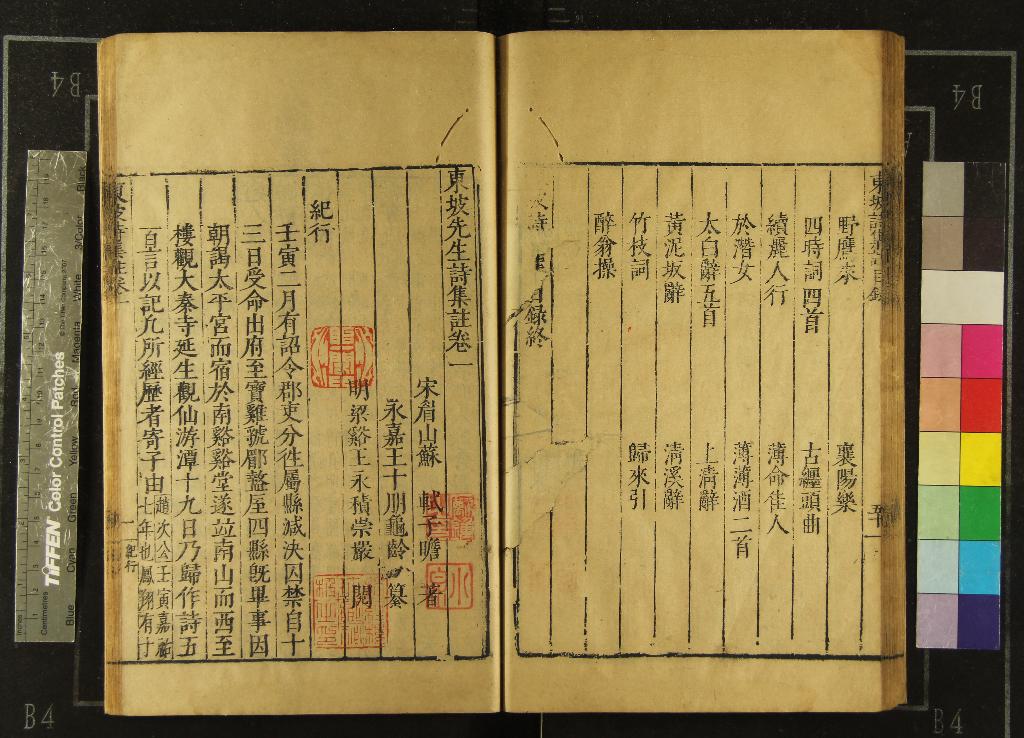 野鷹來
襄陽樂
四時詞四首
古纏頭曲
續麗人行
薄命佳人
於潛女
薄薄酒二首
太白辭五首
上清辭
黃泥坂辭
清溪辭
竹枝詞
歸來引
醉翁操
目錄終
東坡先生詩集註卷一
宋眉山蘇 軾子瞻 著
永嘉王十朋龜齡 纂
明梁谿王永積崇巖 閱
紀行
壬寅二月有詔令郡吏分徃屬縣减决囚禁自十
三日受命出府至寶雞虢郿盩厔四縣既畢事因
朝謁太平宮而宿於南谿谿堂遂竝南山而西至
樓觀大秦寺延生觀仙游潭十九日乃歸作詩五
百言以記凡所經歷者寄子由
趙次公壬寅嘉祐
七年也鳳翔有十
一
紀行
TIFFEN Color Control Patches
Centimetres
Inches
Blue
Cyan
Green
Yellow
Red
Magenta
White
3/Color
Black
B4
B4
B4
B4